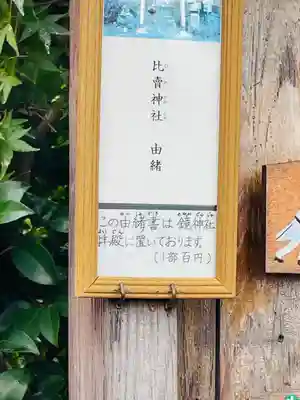 比賣神社 由緒
この由緒書は鏡神社
拝殿に置いております
(1部百円)